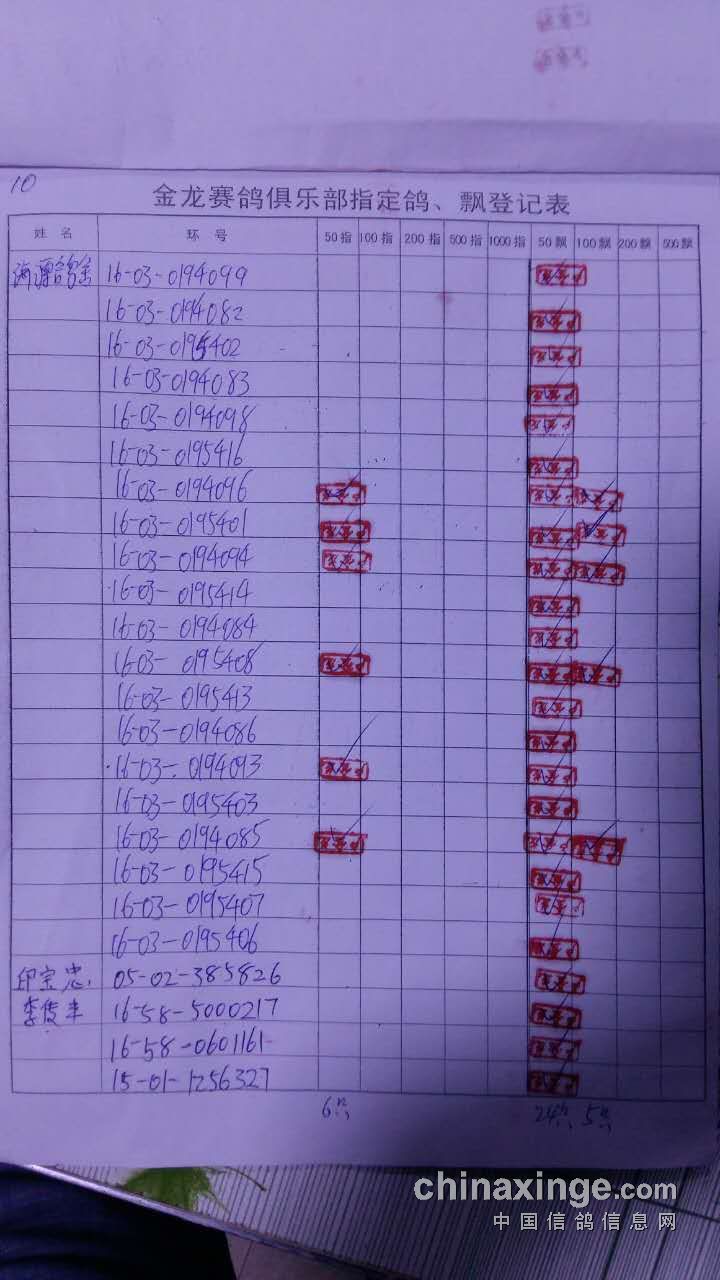 10
金龙赛鸽俱乐部指定鸽、飘登记表
姓 名 环 号 50指 100指 200指 500指 1000指 50飘 100飘 200飘 500飘
海源鸽舍 16-03-0194099
16-03-0194082
16-03-0195402
16-03-0194083
16-03-0194098
16-03-0195416
16-03-0194096
16-03-0195401
16-03-0194094
16-03-0195414
16-03-0194084
16-03-0195408
16-03-0195413
16-03-0194086
16-03-0194093
16-03-0195403
16-03-0194085
16-03-0195415
16-03-0195407
16-03-0195406
印宝忠 05-02-385826
李俊丰 16-58-5000217
16-58-0601161
15-01-1256327
6 24 5
chinaxinge.com
中国信鸽信息网